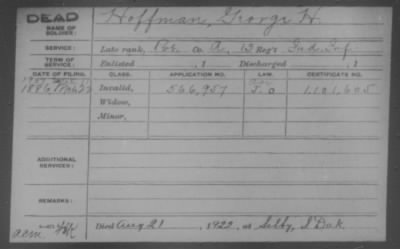 DEAD
NAME OF SOLDIER: Hoffman, George H.
SERVICE: Late rank, Co. A, 13 Reg't Ind. Inf.
TERM OF SERVICE: Enlisted , 1 Discharged , 1
DATE OF FILING. CLASS. APPLICATION NO. LAW. CERTIFICATE NO.
1886 Invalid, 566,957 1.101,605
Widow,
Minor,
ADDITIONAL SERVICES:
REMARKS:
Died Aug 21, 1922, at Selby, S Dak.
acm.